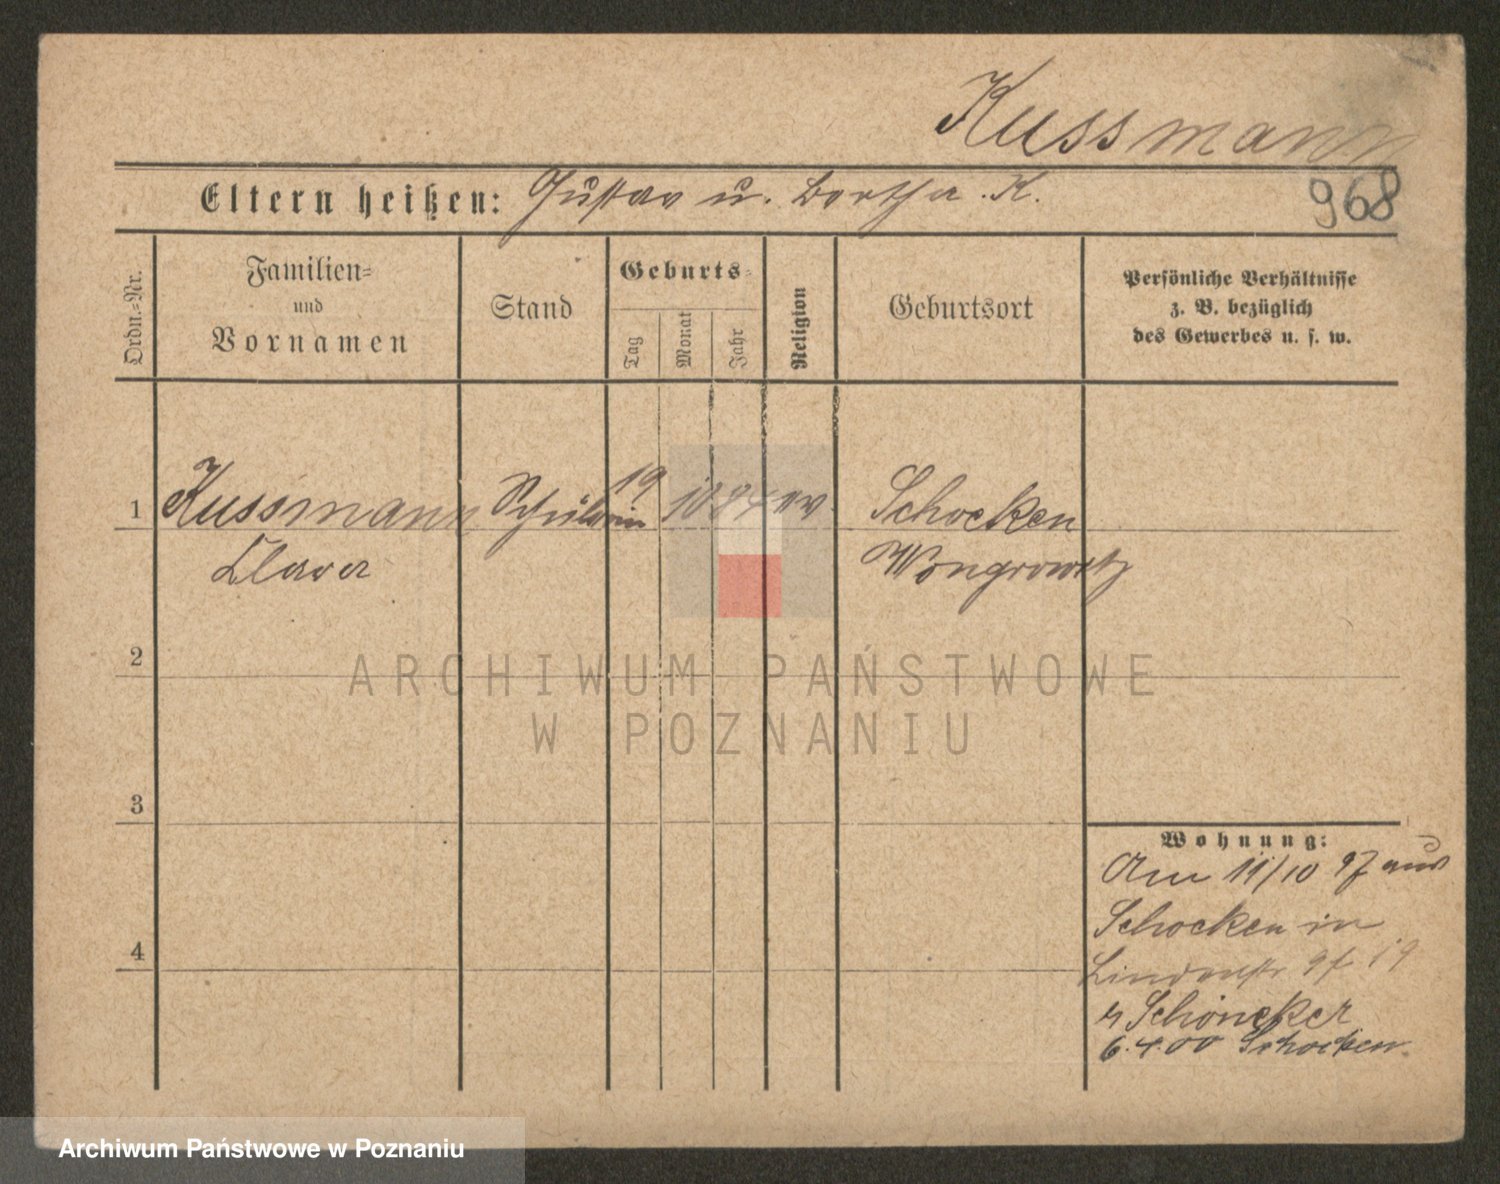 Kussmann
Eltern heißen: Gustav u. Bertha K.
968
Ordn.-Nr.
Familien-
und
Vornamen
Stand
Geburts-
Tag
Monat
Jahr
Religion
Geburtsort
Persönliche Verhältnisse
z. B. bezüglich
des Gewerbes u. s. w.
1 Kussmann Schülerin 19 10 84 ev. Schocken
Clara Wongrowitz
2
3
4
ARCHIWUM PAŃSTWOWE
W POZNANIU
Wohnung:
Am 11/10 97 aus
Schocken in
Lindenstr 9 19
Schöneker
6.4.00 Schocken.
Archiwum Państwowe w Poznaniu